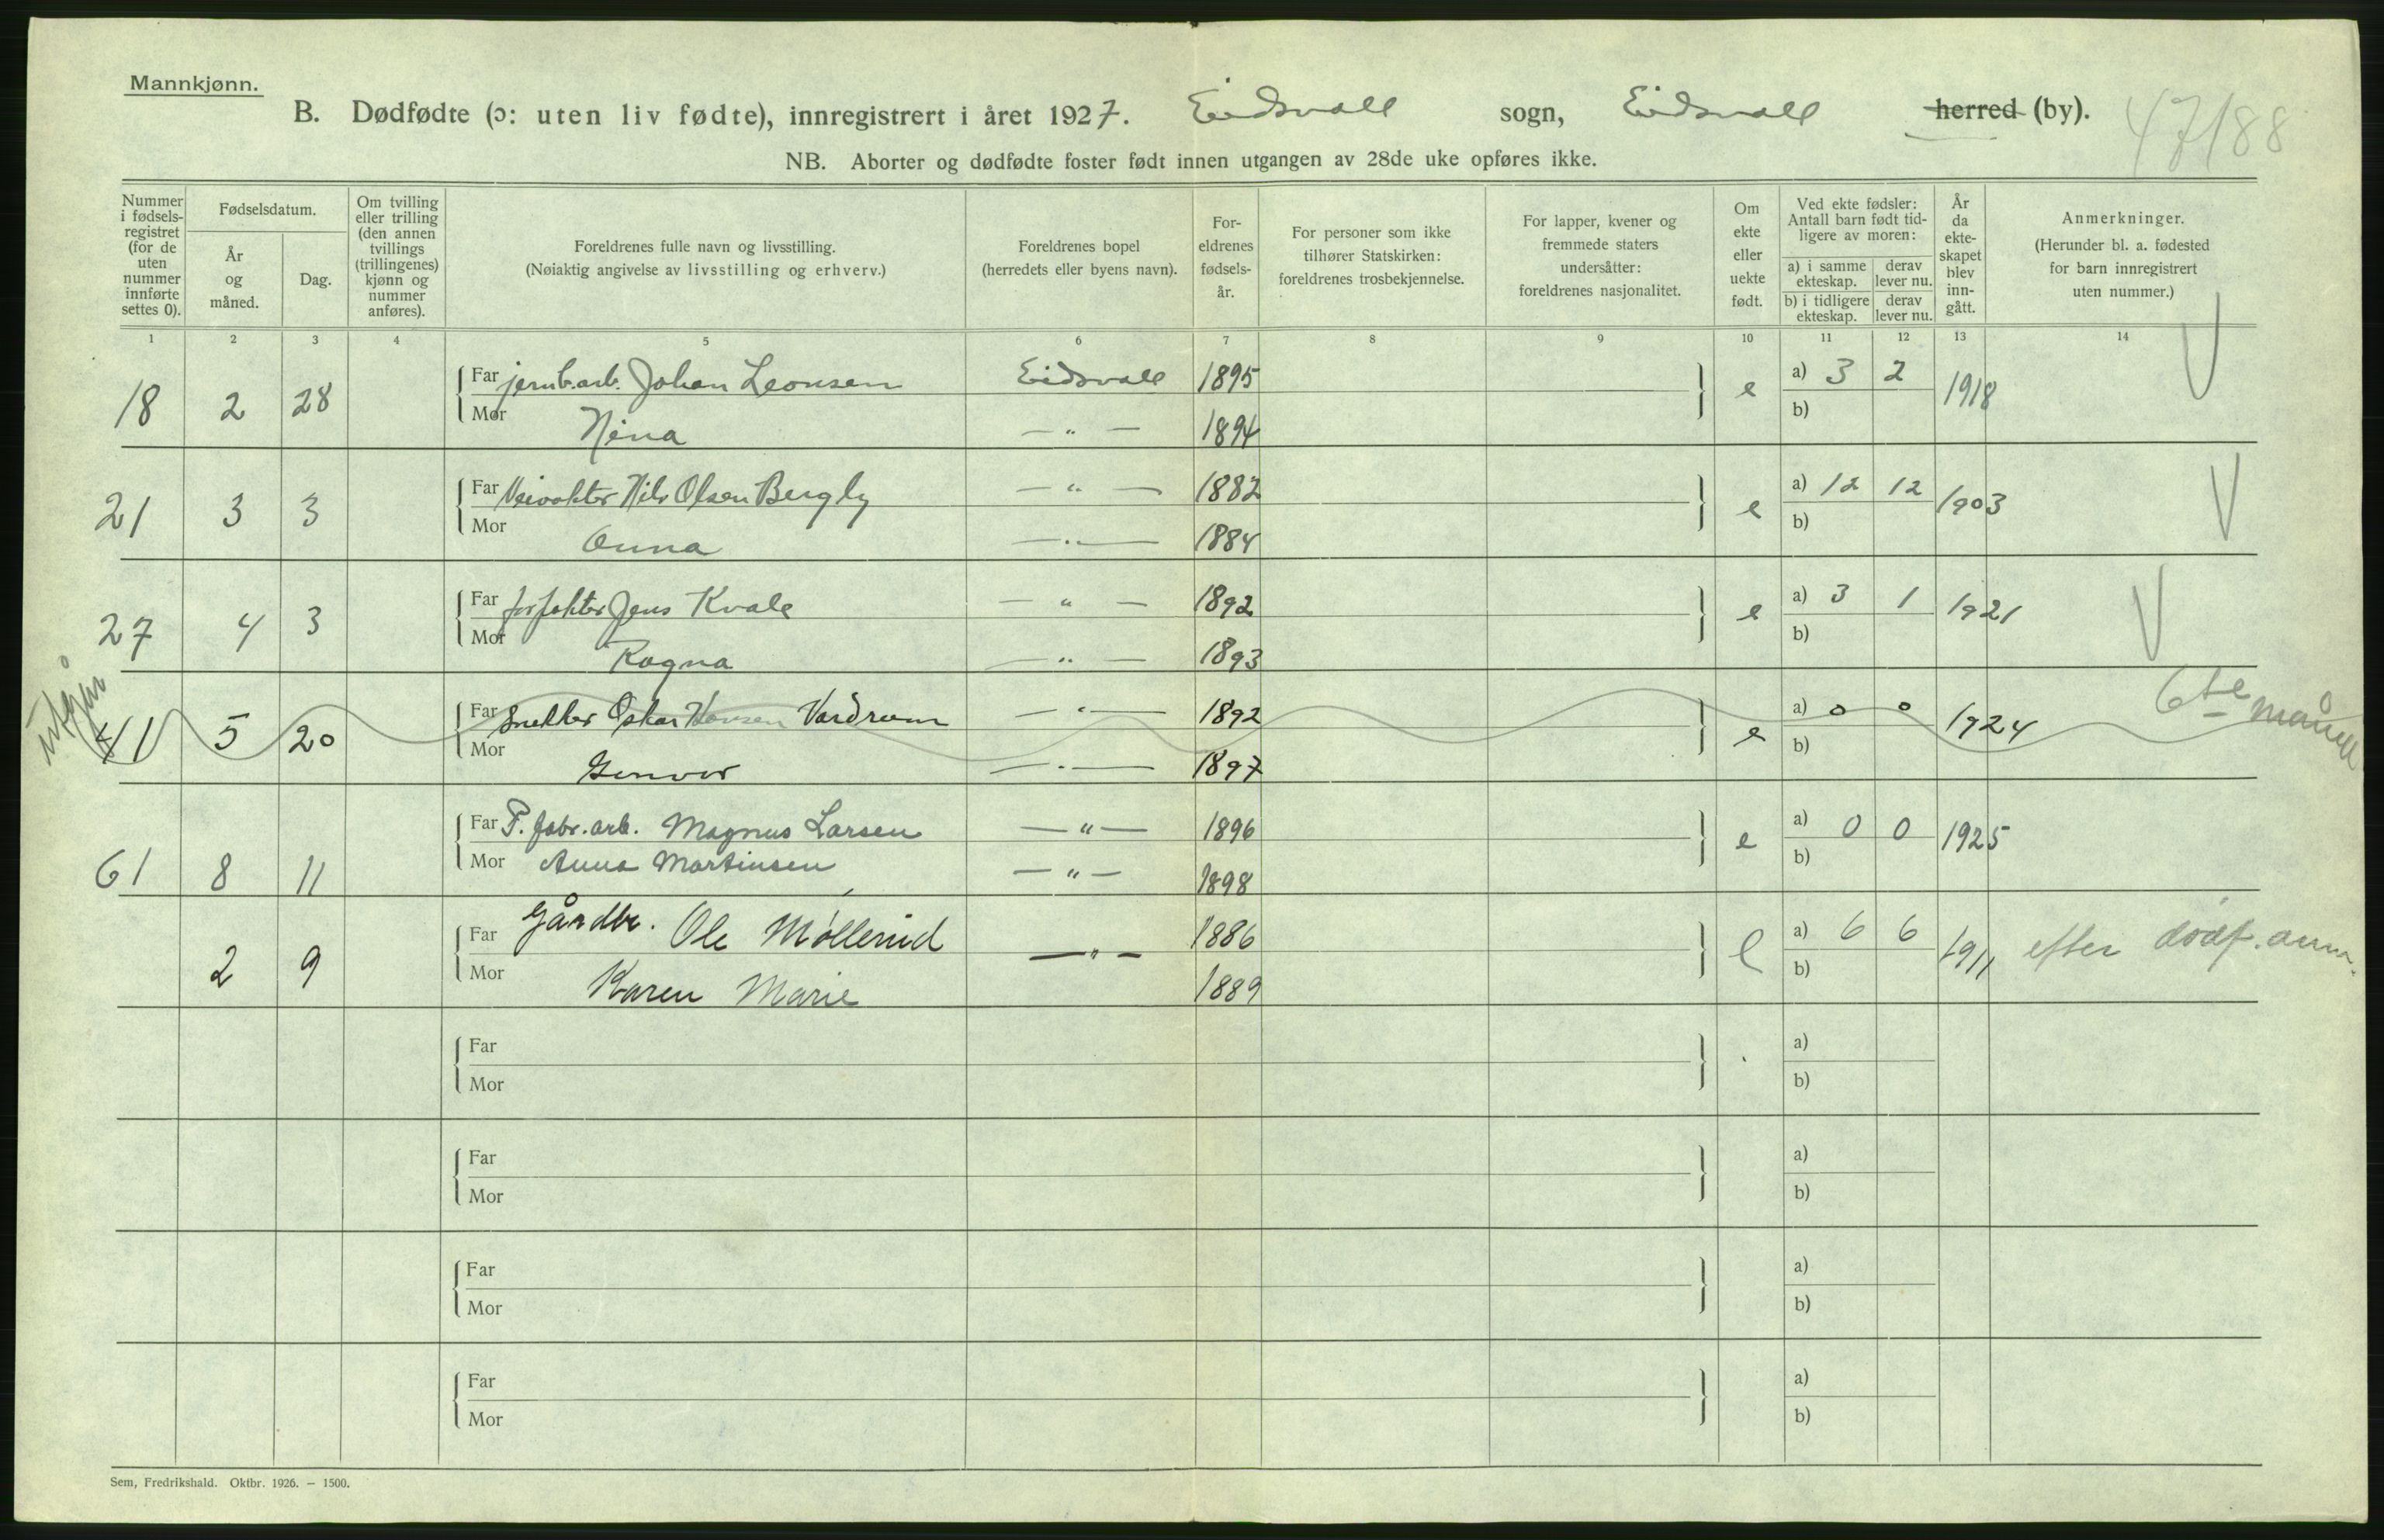 Mannkjønn.
B. Dødfødte (ɔ: uten liv fødte), innregistrert i året 1927. Eidsvoll sogn, Eidsvoll herred (by). 47/88
NB. Aborter og dødfødte foster født innen utgangen av 28de uke opføres ikke.
Nummer i fødsels-registret (for de uten nummer innførte settes 0).
Fødselsdatum.
År og måned.
Dag.
Om tvilling eller trilling (den annen tvillings (trillingenes) kjønn og nummer anføres).
Foreldrenes fulle navn og livsstilling.
(Nøiaktig angivelse av livsstilling og erhverv.)
Foreldrenes bopel
(herredets eller byens navn).
For-eldrenes fødsels-år.
For personer som ikke tilhører Statskirken: foreldrenes trosbekjennelse.
For lapper, kvener og fremmede staters undersåtter: foreldrenes nasjonalitet.
Om ekte eller uekte født.
Ved ekte fødsler: Antall barn født tid-ligere av moren:
a) i samme ekteskap.
derav lever nu.
b) i tidligere ekteskap.
derav lever nu.
År da ekte-skapet blev inn-gått.
Anmerkninger.
(Herunder bl. a. fødested for barn innregistrert uten nummer.)
1 2 3 4 5 6 7 8 9 10 11 12 13 14
18 2 28 Far jernb.arb. Johan Leonsen Eidsvoll 1895 e a) 3 2 1918
Mor Nina — " — 1894 b)
21 3 3 Far Veivokter Nils Olsen Bergly — " — 1882 e a) 12 12 1903
Mor Anna — " — 1884 b)
27 4 3 Far forpakter Jens Kvale — " — 1892 e a) 3 1 1921
Mor Ragna — " — 1893 b)
utgår
41 5 20 Far Snekker Oskar Hansen Vardrum — " — 1892 e a) 0 0 1924 6te måned
Mor Gunvor — " — 1897 b)
61 8 11 Far F. fabr.arb. Magnus Larsen — " — 1896 e a) 0 0 1925
Mor Anna Martinsen — " — 1898 b)
2 9 Far Gårdbr. Ole Møllerud — " — 1886 e a) 6 6 1911 efter dødf. anm.
Mor Karen Marie 1889 b)
Far a)
Mor b)
Far a)
Mor b)
Far a)
Mor b)
Far a)
Mor b)
Sem, Fredrikshald. Oktbr. 1926. — 1500.